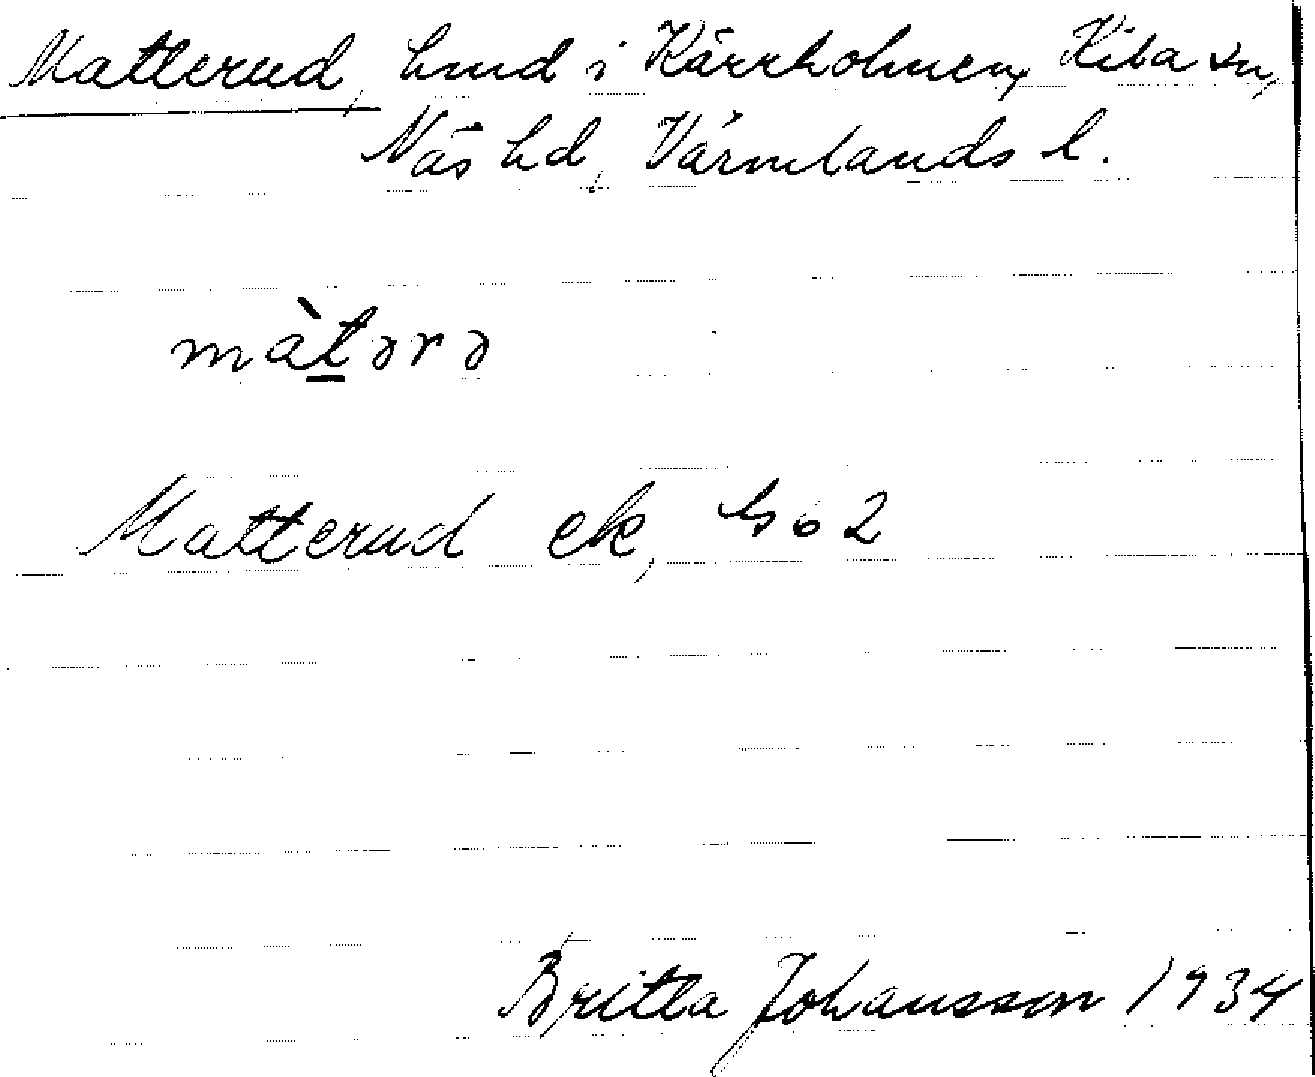 Matterud, hmd i Kärrholmen, Kila sn,
Näs hd, Värmlands l.
màtərə
Matterud ek, bl 62
Britta Johansson 1934